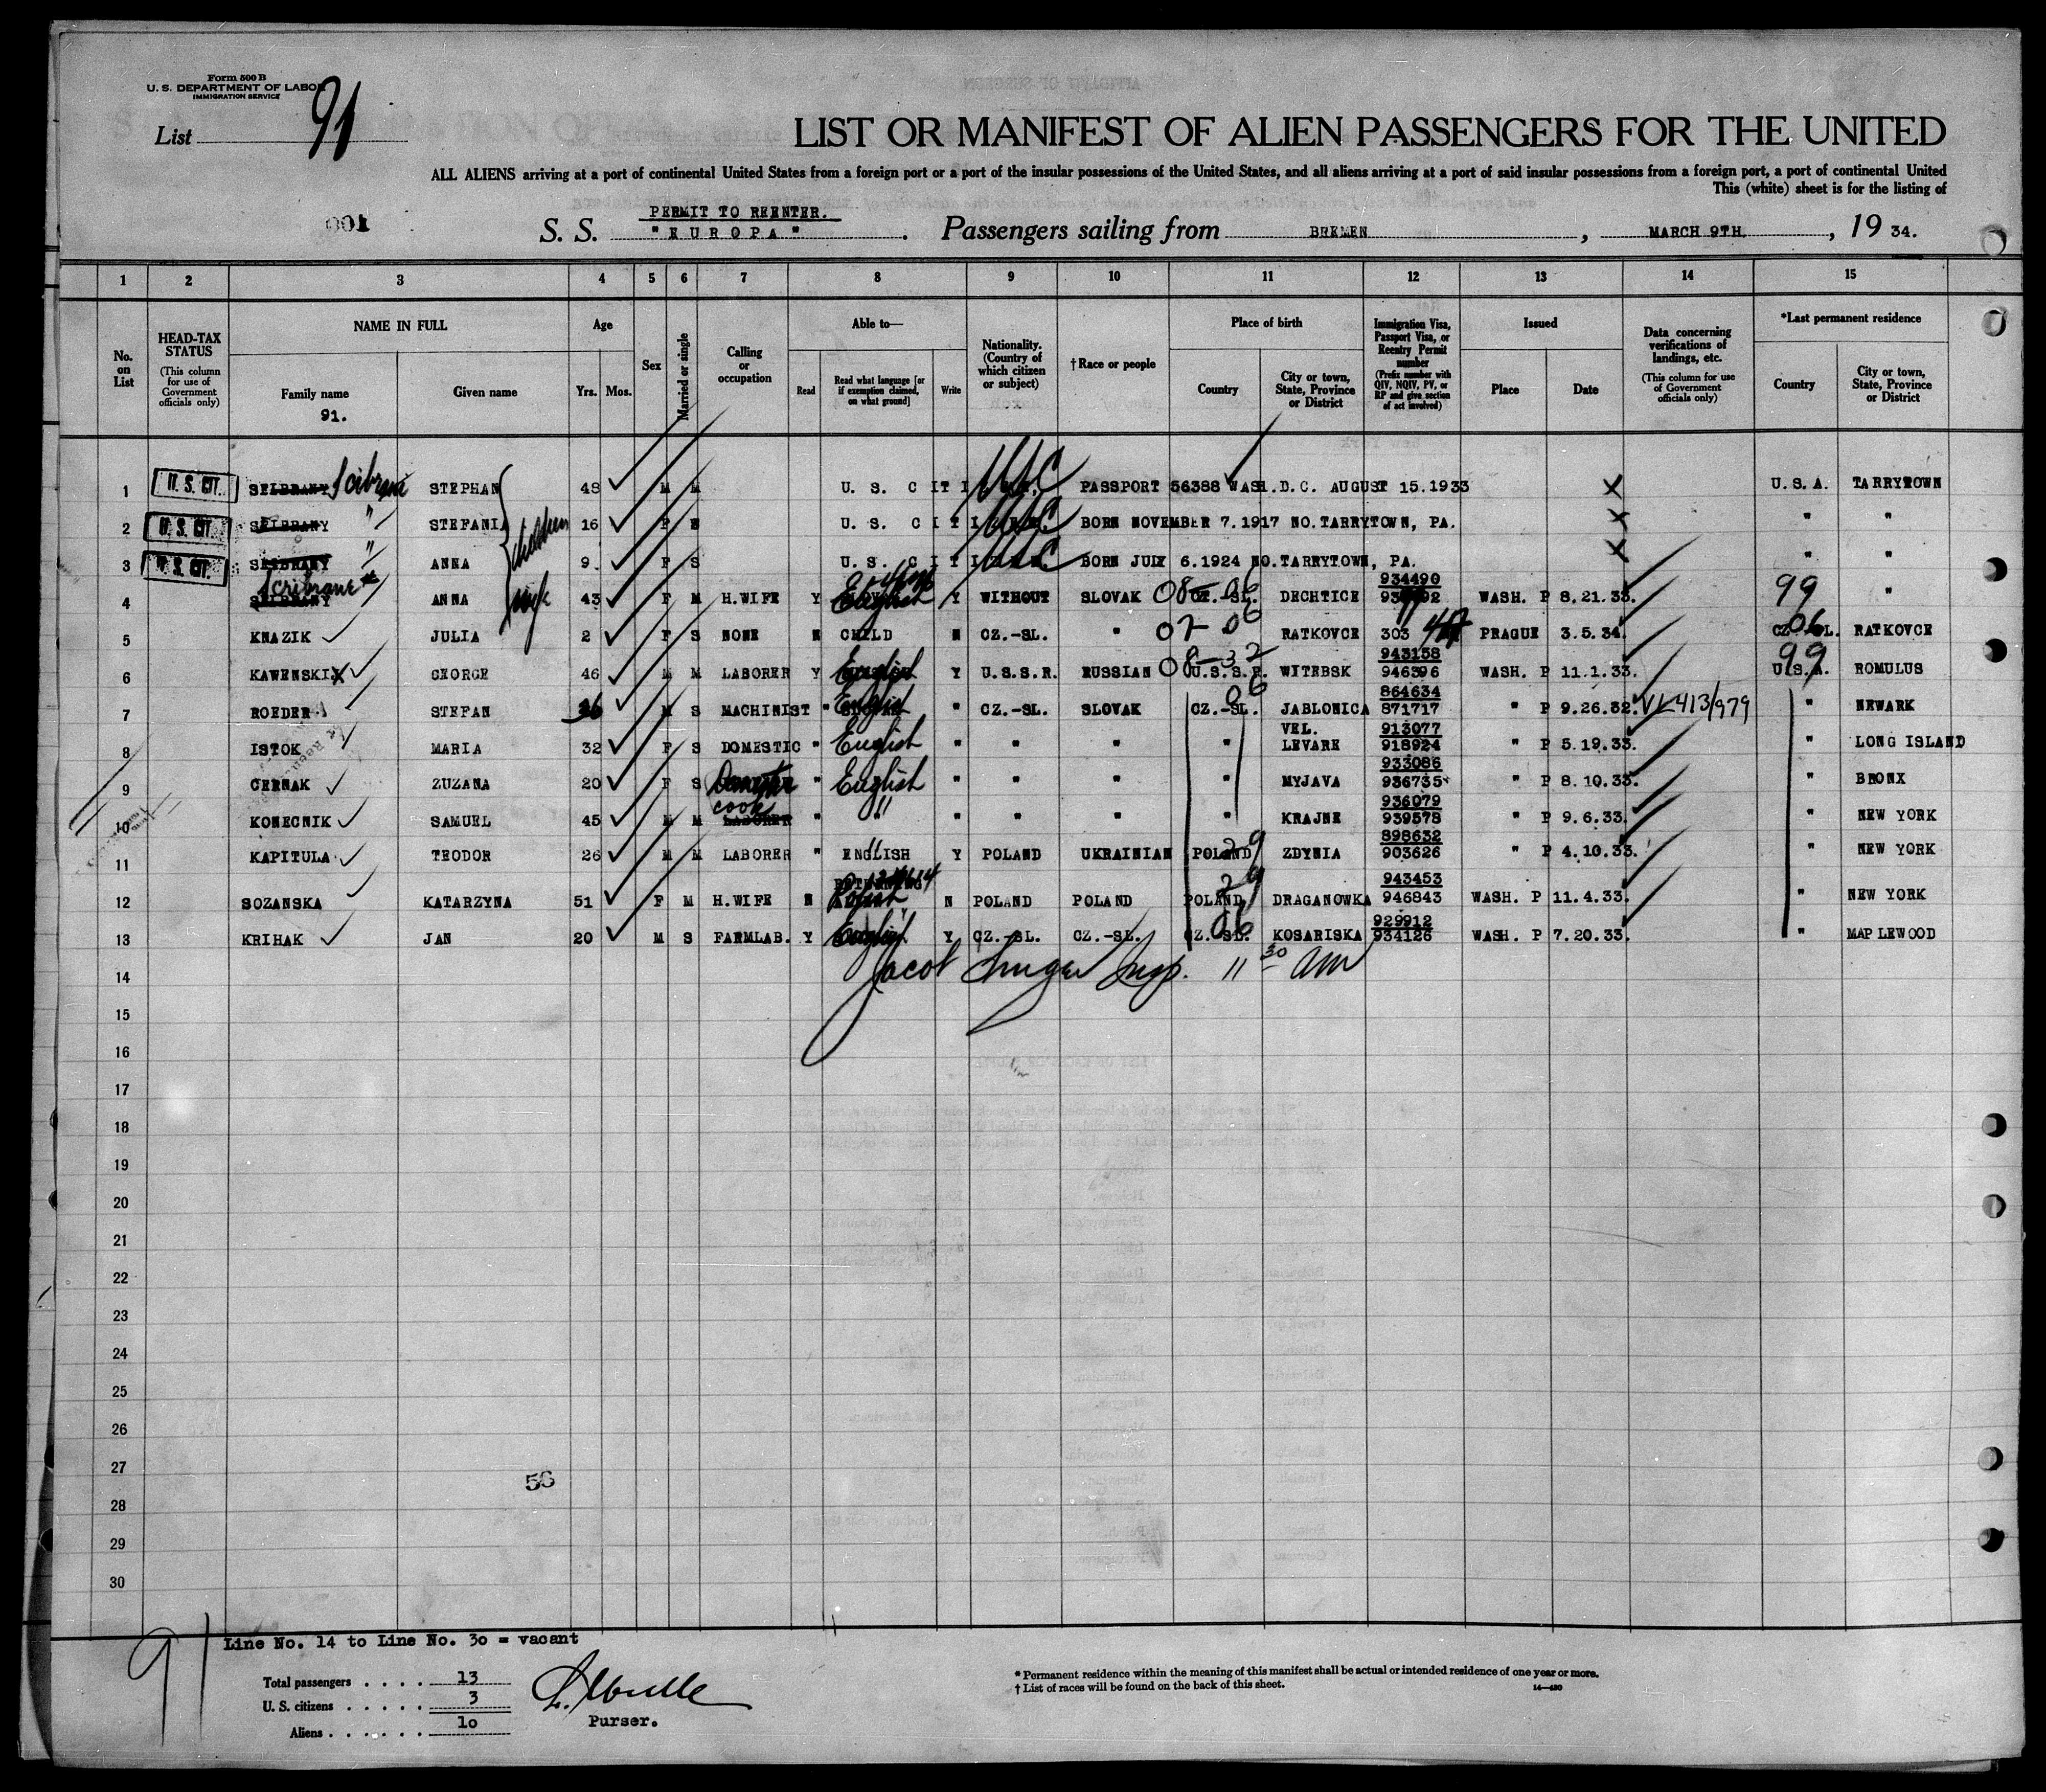 Form 500 B
U. S. DEPARTMENT OF LABOR
IMMIGRATION SERVICE
List 91
LIST OR MANIFEST OF ALIEN PASSENGERS FOR THE UNITED
ALL ALIENS arriving at a port of continental United States from a foreign port or a port of the insular possessions of the United States, and all aliens arriving at a port of said insular possessions from a foreign port, a port of continental United
This (white) sheet is for the listing of
001
PERMIT TO REENTER.
S. S. "EUROPA". Passengers sailing from BREMEN, MARCH 9TH., 19 34.
1 2 3 4 5 6 7 8 9 10 11 12 13 14 15
No. on List
HEAD-TAX STATUS (This column for use of Government officials only)
NAME IN FULL Family name 91. Given name
Age Yrs. Mos.
Sex
Married or single
Calling or occupation
Able to— Read Read what language [or if exemption claimed, on what ground] Write
Nationality. (Country of which citizen or subject)
† Race or people
Place of birth Country City or town, State, Province or District
Immigration Visa, Passport Visa, or Reentry Permit number (Prefix number with QIV, NQIV, PV, or RP and give section of act involved)
Issued Place Date
Data concerning verifications of landings, etc. (This column for use of Government officials only)
*Last permanent residence Country City or town, State, Province or District
1 U. S. CIT. Scibrane STEPHAN 48 M M U. S. CITIZEN. USC PASSPORT 56388 WASH.D.C. AUGUST 15.1933 X U.S.A. TARRYTOWN
2 U. S. CIT. " STEFANIA children 16 F U. S. CITIZEN. USC BORN NOVEMBER 7.1917 NO.TARRYTOWN, PA. X " "
3 U. S. CIT. " ANNA 9. F S U. S. CITIZEN. USC BORN JULY 6.1924 NO.TARRYTOWN, PA. X " "
4 Scribrane ANNA wife 43 F M H.WIFE Y English Y WITHOUT SLOVAK 08-06 CZ.-SL. DECHTICE 934490 WASH. P 8.21.33. 99 "
5 KNAZIK JULIA 2 F S NONE N CHILD N CZ.-SL. " 07-06 RATKOVCE 303 PRAGUE 3.5.34. CZ.-SL. 06 RATKOVCE
6 KAWENSKI GEORGE 46 M M LABORER Y English Y U.S.S.R. RUSSIAN 08-32 U.S.S.R. WITEBSK 943158 946396 WASH. P 11.1.33. U.S.A. 99 ROMULUS
7 ROEDER STEFAN 36 M S MACHINIST " English " CZ.-SL. SLOVAK CZ.-SL. 06 JABLONICA 864634 871717 " P 9.26.32. VL413/979 " NEWARK
8 ISTOK MARIA 32 F S DOMESTIC " English " " " " VEL. LEVARE 913077 918924 " P 5.19.33. " LONG ISLAND
9 CERNAK ZUZANA 20 F S Domestic " English " " " " MYJAVA 933086 936735 " P 8.10.33. " BRONX
10 KONECNIK SAMUEL 45 M M cook LABORER " " " " " " KRAJNE 936079 939578 " P 9.6.33. " NEW YORK
11 KAPITULA TEODOR 26 M M LABORER " ENGLISH Y POLAND UKRAINIAN POLAND 29 ZDYNIA 898632 903626 " P 4.10.33. " NEW YORK
12 SOZANSKA KATARZYNA 51 F M H.WIFE N N POLAND POLAND POLAND 29 DRAGANOWKA 943453 946843 WASH. P 11.4.33. " NEW YORK
13 KRIHAK JAN 20 M S FARMLAB. Y English Y CZ.-SL. CZ.-SL. CZ.-SL. 06 KOSARISKA 929912 934126 WASH. P 7.20.33. " MAPLEWOOD
14 Jacob Insp. 11 30 am
15
16
17
18
19
20
21
22
23
24
25
26
27
56
28
29
30
91
Line No. 14 to Line No. 30 = vacant
Total passengers . . . . 13
U. S. citizens . . . . . 3
Aliens . . . . . . 10
Purser.
* Permanent residence within the meaning of this manifest shall be actual or intended residence of one year or more.
† List of races will be found on the back of this sheet.
14—430